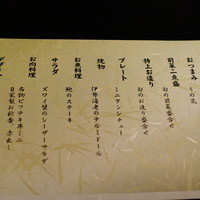 おつまみ
うの花
前菜二点盛
旬の前菜盛合せ
特上お造り
旬のお造り盛合せ
プレート
ミニタンシチュー
焼物
伊勢海老のテルミドール
お魚料理
鮑のステーキ
サラダ
ズワイ蟹のシーザーサラダ
お肉料理
名物ビフテキ丼ミニ
自家製お新香、赤だし